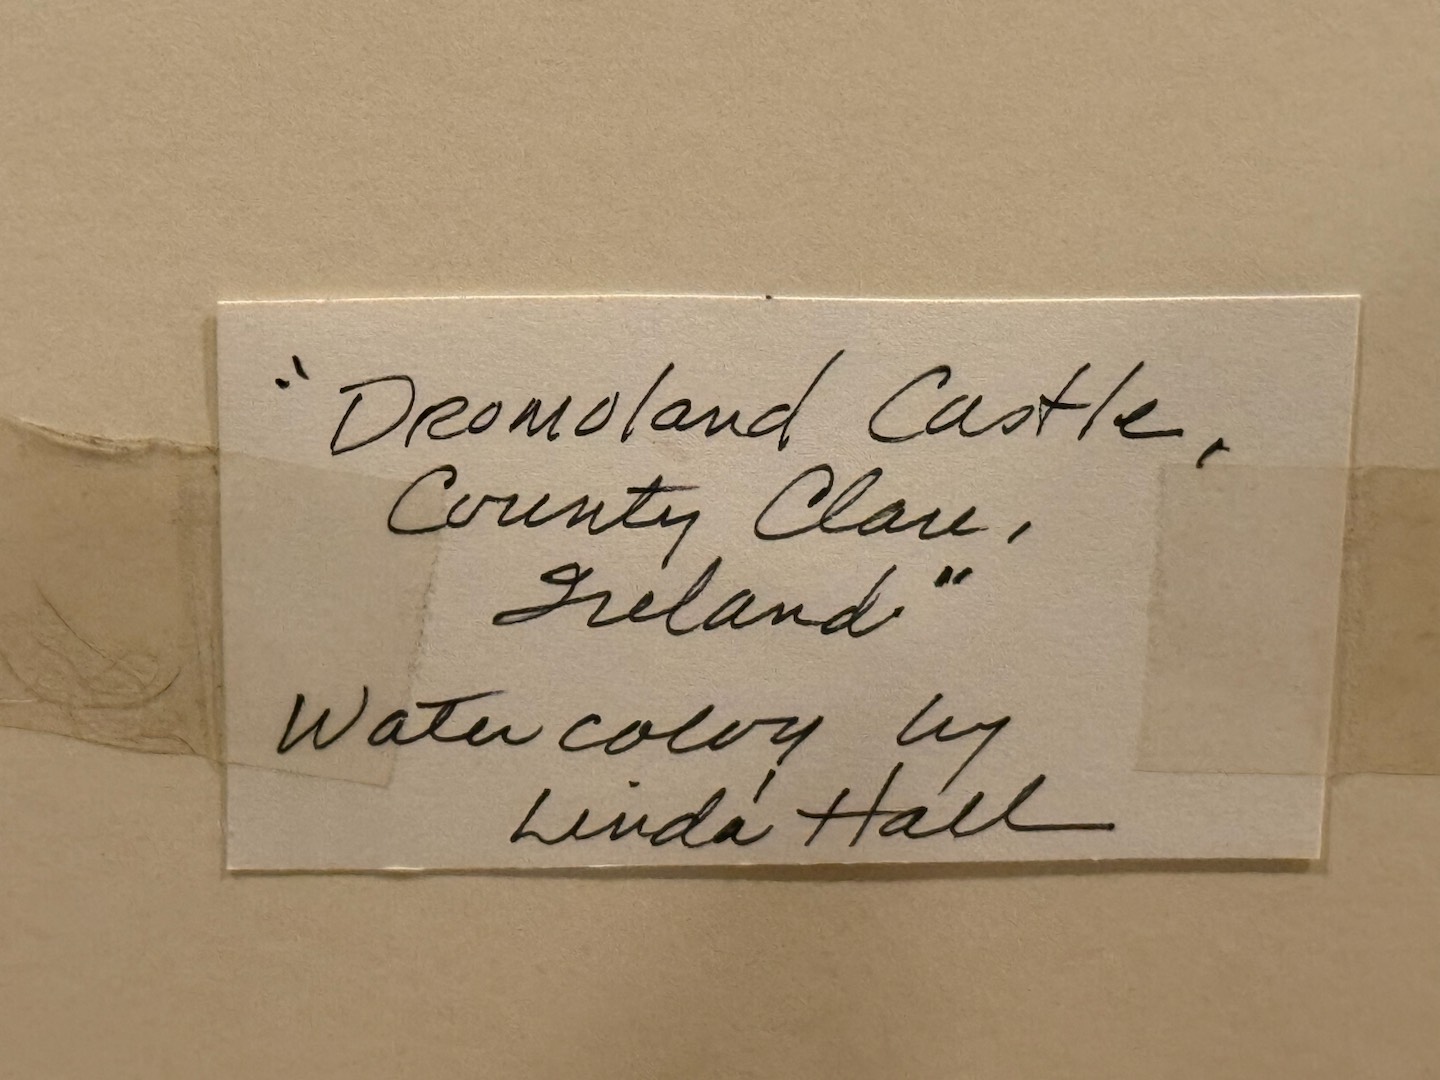 "Dromoland Castle,
County Clare,
Ireland"
Watercolor by
Linda Hall